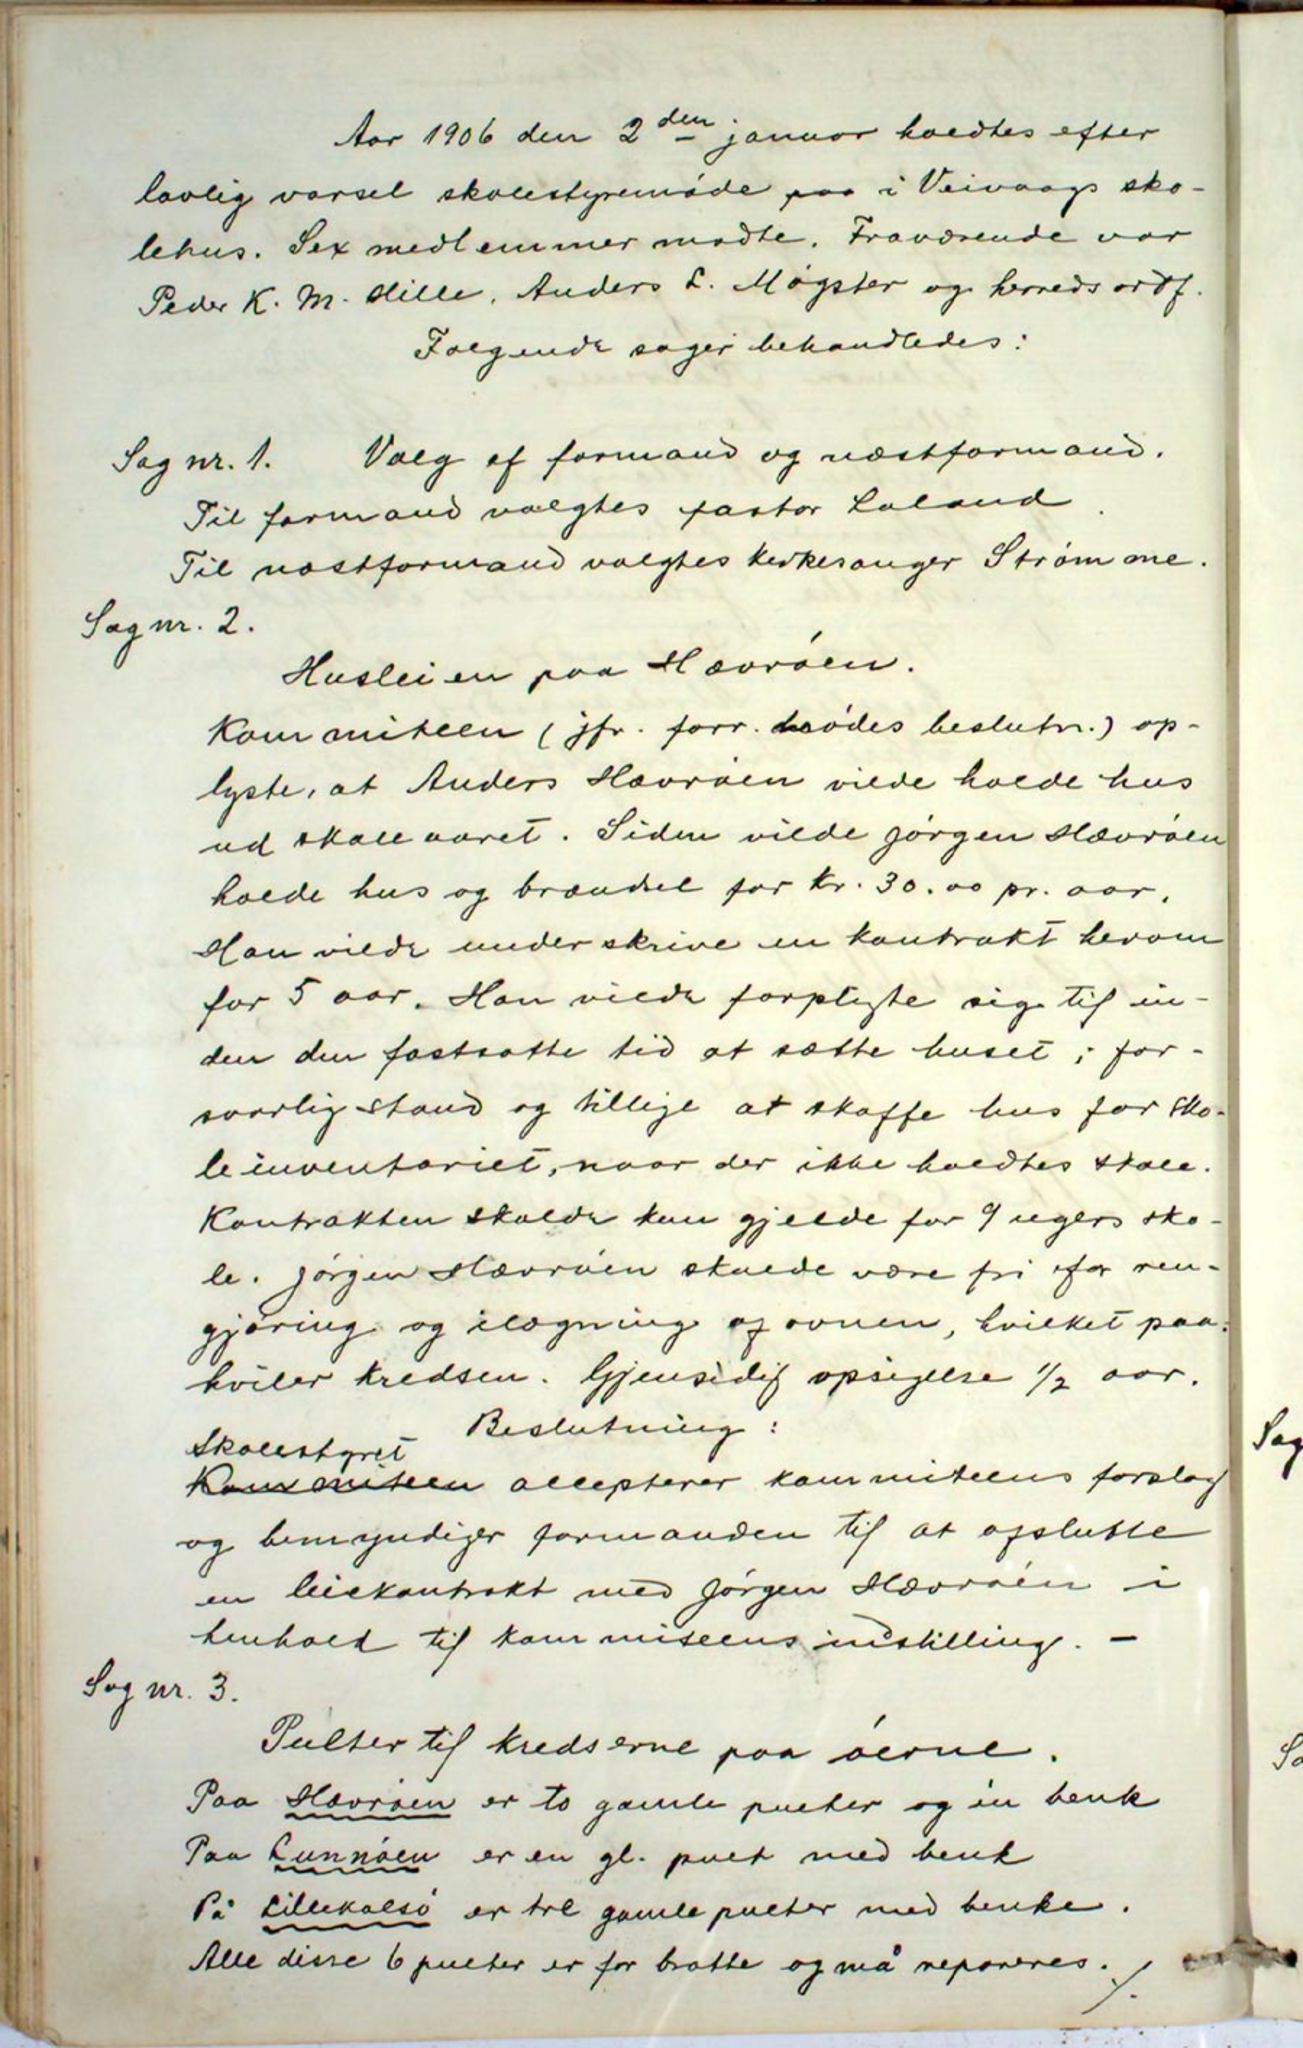 Aar 1906 den 2den januar holdtes efter
lovlig varsel skolestyremöde paa i Veivaags sko-
lehus. Sex medlemmer mødte. Fraværende var
Peder K. M. Hille, Anders L. Møgster og herredsordf.
Følgende sager behandledes:
Sag nr. 1. Valg af formand og næstformand.
Til formand valgtes pastor Laland.
Til næstformand valgtes kirkesanger Strømme.
Sag nr. 2.
Husleien paa Hævröen.
Kommiteen (jfr. forr. mödes beslutn.) op-
lyste, at Anders Hævröen vilde holde hus
ud skoleaaret. Siden vilde Jörgen Hævröen
holde hus og brændsel for kr. 30.00 pr. aar.
Han vilde underskrive en kontrakt herom
for 5 aar. Han vilde forpligte sig til in-
den den fastsatte tid at sætte huset i for-
svarlig stand og tillige at skaffe hus for sko-
leinventariet, naar der ikke holdtes skole.
Kontrakten skulde kun gjelde for 9 ugers sko-
le. Jörgen Hævröen skulde være fri for ren-
gjöring og ilægning af ovnen, hvilket paa-
hviler kredsen. Gjensidig opsigelse 1/2 aar.
Beslutning:
Skolestyret
Kommiteen accepterer kommiteens forslag
og bemyndiger formanden til at afslutte
en leiekontrakt med Jörgen Hævröen i
henhold til kommiteens indstilling. –
Sag nr. 3.
Pulter til kredserne paa öerne.
Paa Hævröen er to gamle pulter og én benk
Paa Lunnöen er en gl. pult med benk
På Lillekalsö er tre gamle pulter med benke.
Alle disse 6 pulter er for bratte og må repareres. ./.
Sag